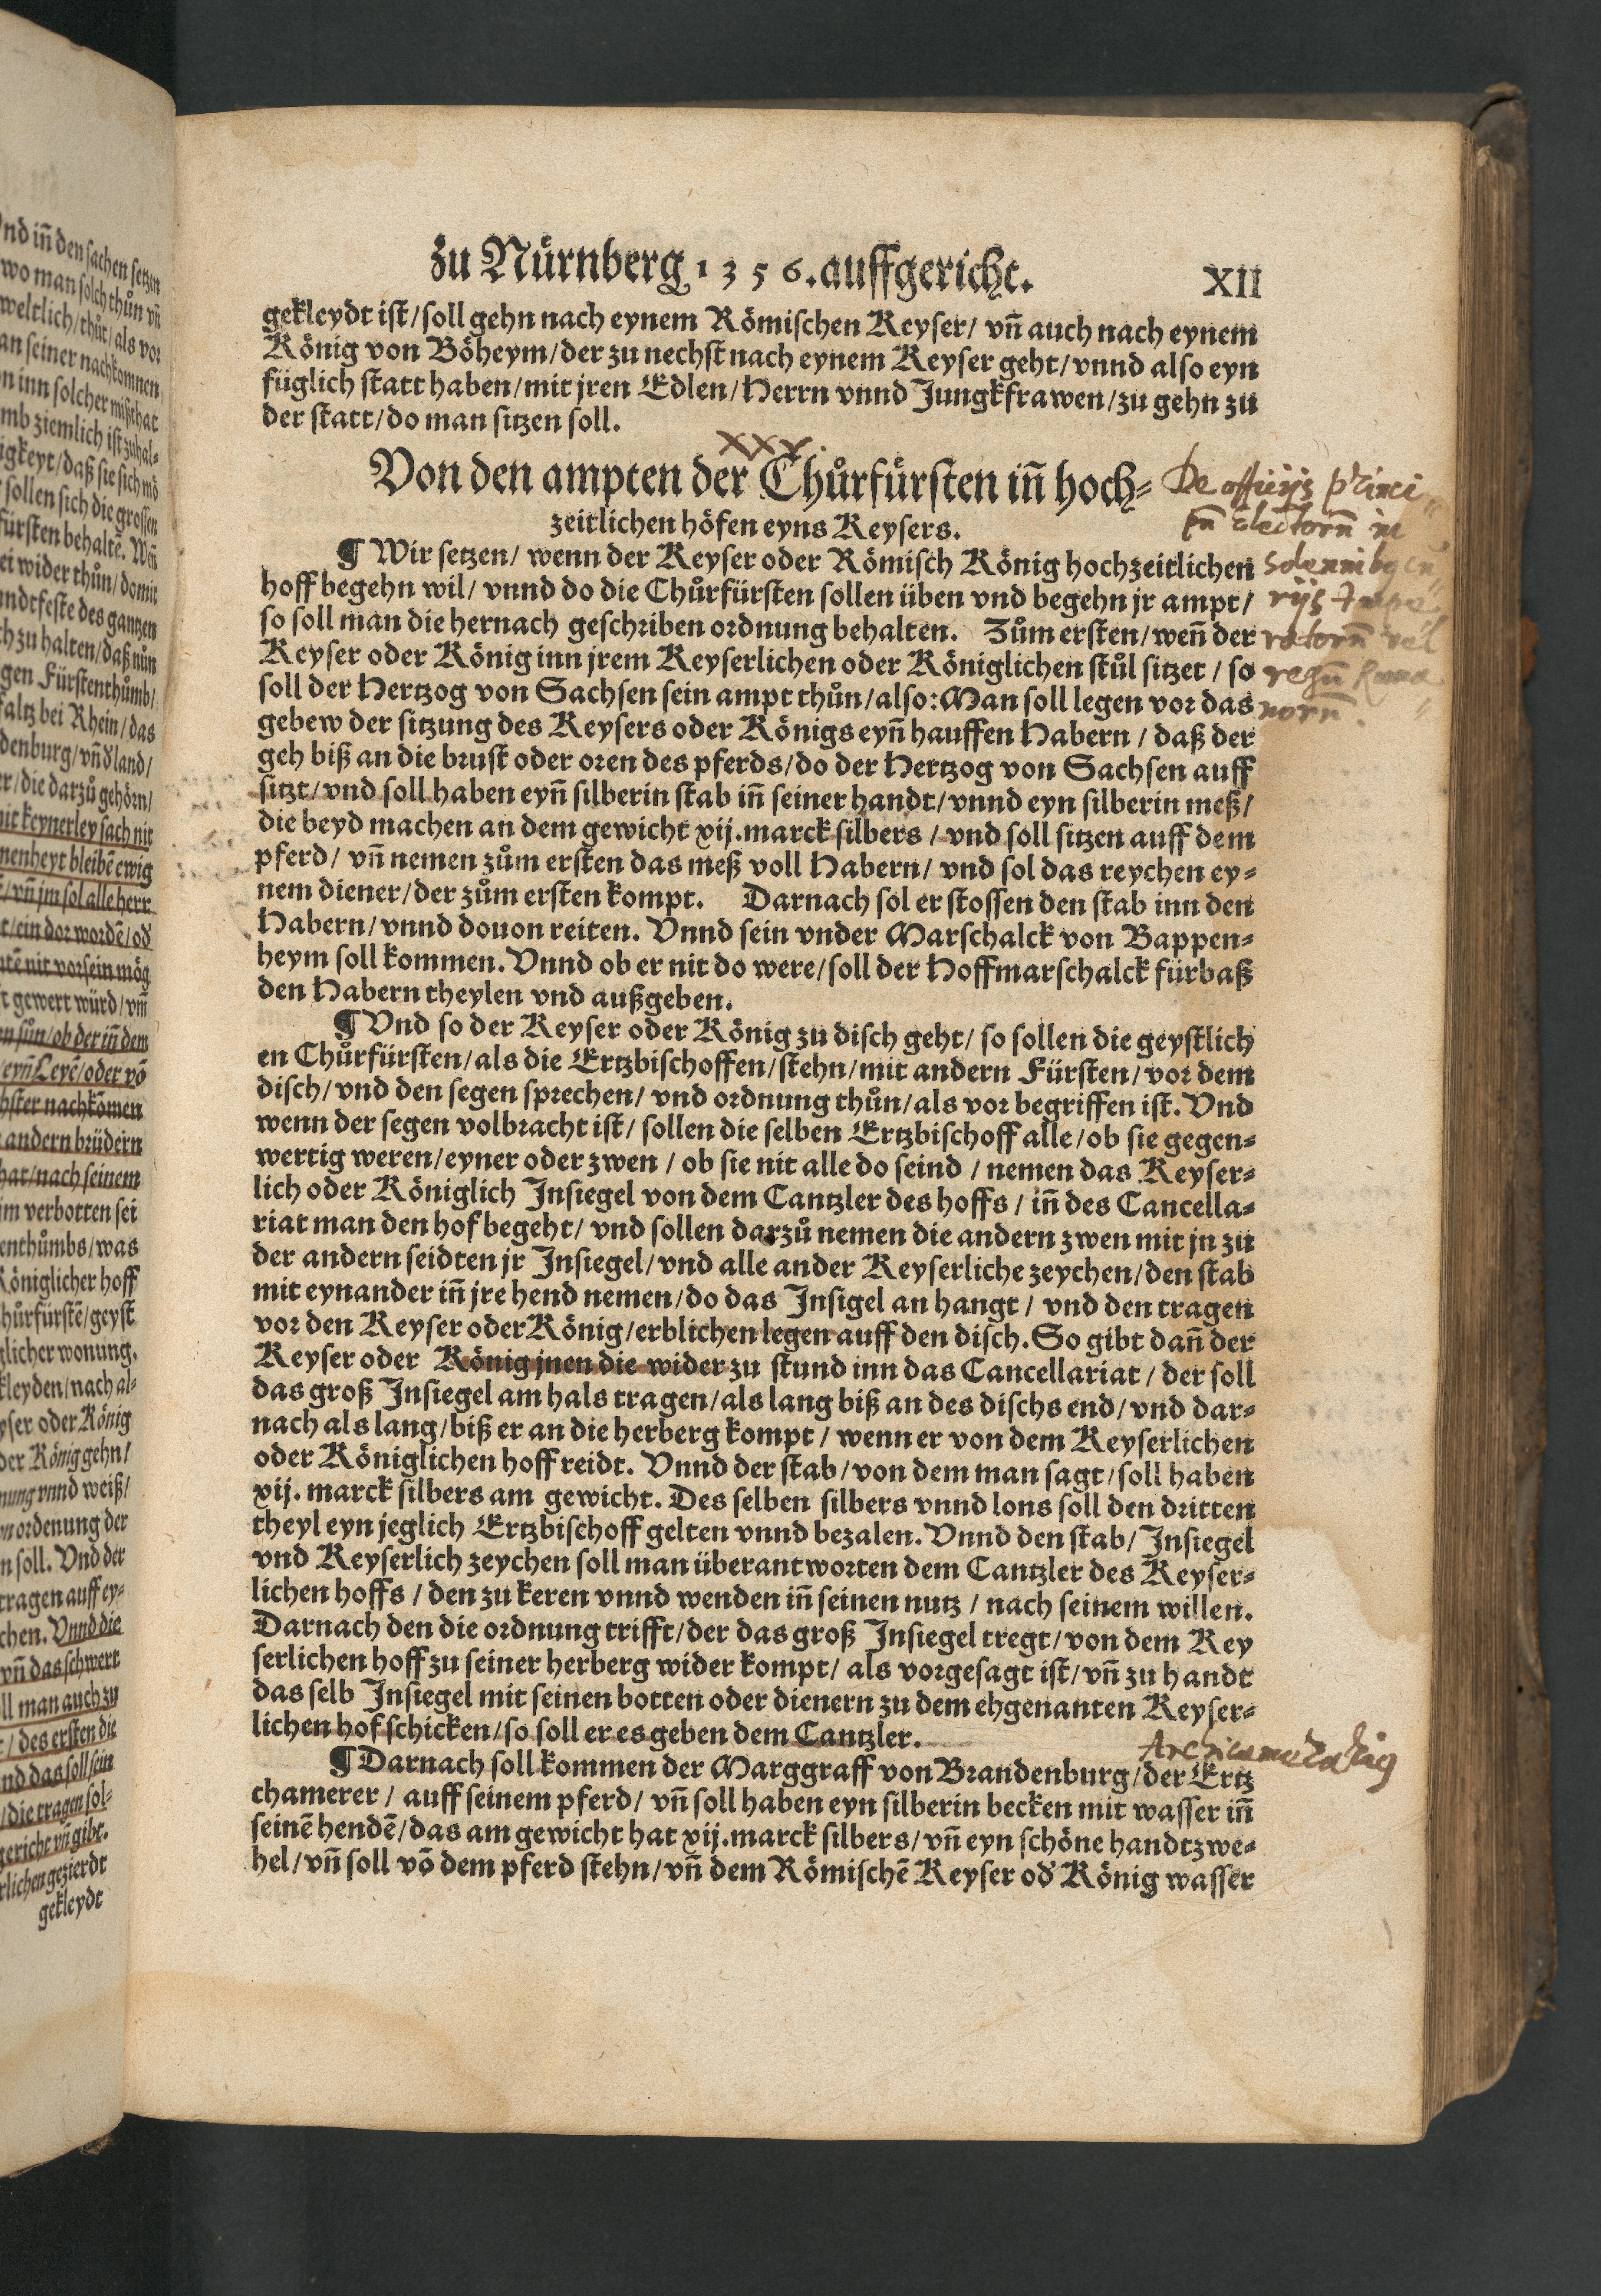 zu Nürnberg 1356. auffgericht. XII
gekleydt ist/soll gehn nach eynem Römischen Keyser/ vñ auch nach eynem
König von Böheym/der zu nechst nach eynem Keyser geht/vnnd also eyn
füglich statt haben/mit jren Edlen/Herrn vnnd Jungkfrawen/zu gehn zu
der statt/do man sitzen soll.
XXX.
Von den ampten der Chůrfürsten iñ hoch=
zeitlichen höfen eyns Keysers.
De officijs princi
pũ Electorũ in
solennib9 cu
rijs Impe
ratorũ vel
regũ Roma
norũ.
¶ Wir setzen/ wenn der Keyser oder Römisch König hochzeitlichen
hoff begehn wil/ vnnd do die Chůrfürsten sollen üben vnd begehn jr ampt/
so soll man die hernach geschriben ordnung behalten. Zům ersten/weñ der
Keyser oder König inn jrem Keyserlichen oder Königlichen stůl sitzet / so
soll der Hertzog von Sachsen sein ampt thůn/also: Man soll legen vor das
gebew der sitzung des Keysers oder Königs eyñ hauffen Habern / daß der
geh biß an die brust oder oren des pferds/do der Hertzog von Sachsen auff
sitzt/vnd soll haben eyñ silberin stab iñ seiner handt/vnnd eyn silberin meß/
die beyd machen an dem gewicht xij.marck silbers / vnd soll sitzen auff dem
pferd/ vñ nemen zům ersten das meß voll Habern/ vnd sol das reychen ey=
nem diener/der zům ersten kompt. Darnach sol er stossen den stab inn den
Habern/vnnd douon reiten. Vnnd sein vnder Marschalck von Bappen=
heym soll kommen. Vnnd ob er nit do were/soll der Hoffmarschalck fürbaß
den Habern theylen vnd außgeben.
¶ Vnd so der Keyser oder König zu disch geht/ so sollen die geystlich
en Chůrfürsten/als die Ertzbischoffen/stehn/mit andern Fürsten/vor dem
disch/vnd den segen sprechen/ vnd ordnung thůn/als vor begriffen ist. Vnd
wenn der segen volbracht ist/ sollen die selben Ertzbischoff alle/ob sie gegen=
wertig weren/eyner oder zwen / ob sie nit alle do seind / nemen das Keyser=
lich oder Königlich Insiegel von dem Cantzler des hoffs / iñ des Cancella=
riat man den hof begeht/ vnd sollen darzů nemen die andern zwen mit jn zu
der andern seidten jr Insiegel/vnd alle ander Keyserliche zeychen/den stab
mit eynander iñ jre hend nemen/do das Insigel an hangt / vnd den tragen
vor den Keyser oder König/erblichen legen auff den disch. So gibt dañ der
Keyser oder König jnen die wider zu stund inn das Cancellariat / der soll
das groß Insiegel am hals tragen/als lang biß an des dischs end/vnd dar=
nach als lang/biß er an die herberg kompt / wenn er von dem Keyserlichen
oder Königlichen hoff reidt. Vnnd der stab/von dem man sagt/soll haben
xij. marck silbers am gewicht. Des selben silbers vnnd lons soll den dritten
theyl eyn jeglich Ertzbischoff gelten vnnd bezalen. Vnnd den stab/ Insiegel
vnd Keyserlich zeychen soll man überantworten dem Cantzler des Keyser=
lichen hoffs / den zu keren vnnd wenden iñ seinen nutz / nach seinem willen.
Darnach den die ordnung trifft/der das groß Insiegel tregt/von dem Key
serlichen hoff zu seiner herberg wider kompt/ als vorgesagt ist/vñ zu handt
das selb Insiegel mit seinen botten oder dienern zu dem ehgenanten Keyser=
lichen hof schicken/so soll er es geben dem Cantzler.
¶ Darnach soll kommen der Marggraff von Brandenburg/der Ertz
chamerer / auff seinem pferd/ vñ soll haben eyn silberin becken mit wasser iñ
seinẽ hendẽ/das am gewicht hat xij.marck silbers/vñ eyn schöne handtzwe=
hel/vñ soll võ dem pferd stehn/vñ dem Römischẽ Keyser oď König wasser